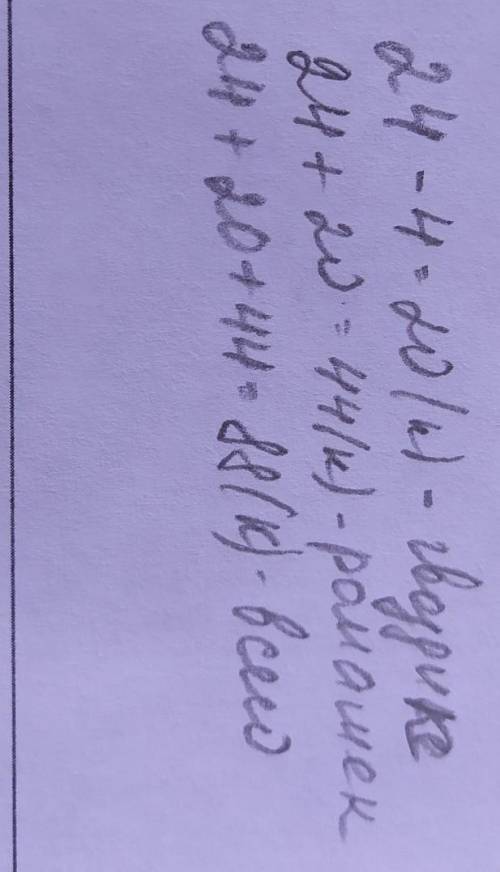 24 - 4 = 20 (к) - гвоздике
24 + 20 = 44 (к) - ромашек
24 + 20 + 44 = 88 (к) - всего